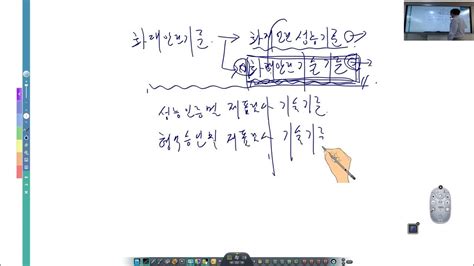 화재안전기준 → 화재안전성능기준
화재안전기술기준
성능인증 및 제품검사 기술기준
형식승인 및 제품검사 기술기준